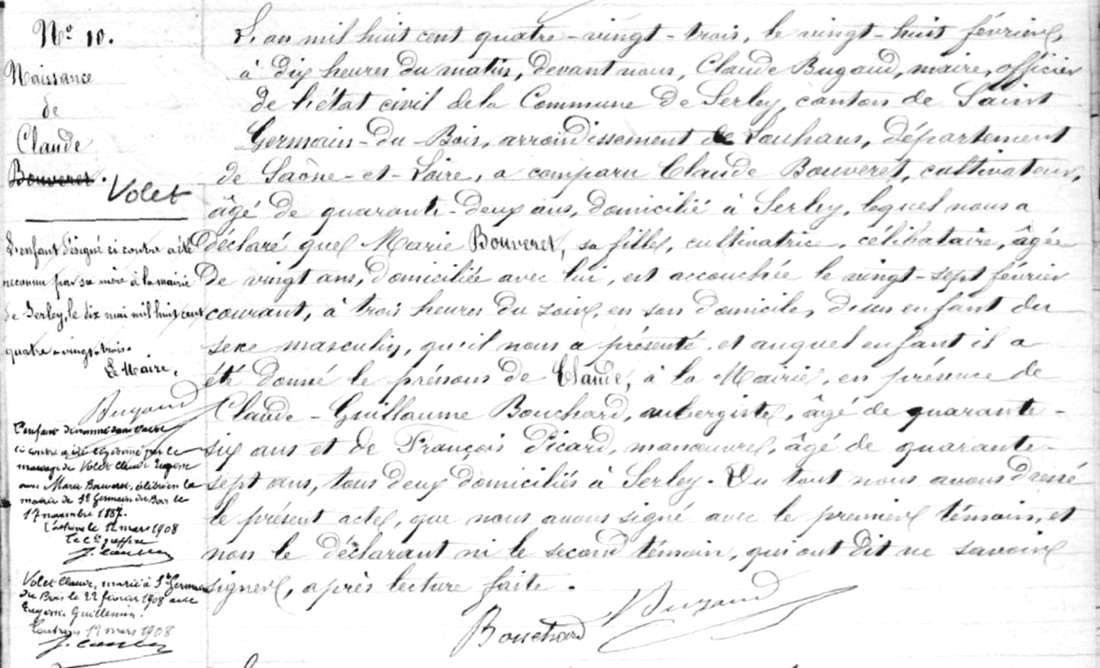 Nº 10.
Naissance
de
Claude
Bouveret.
Volet
L'enfant désigné ci contre a été
reconnu par sa mère à la mairie
de Serley, le dix mai mil huit cent
quatre-vingt-trois.
Le Maire,
Bugaud
L'enfant dénommé dans l'acte
ci contre a été légitimé par le
mariage de Volet Claude Eugène
avec Marie Bouveret, célébré en la
mairie de St Germain du Bois le
17 novembre 1887.
Louhans le 12 mars 1908
Le Cis greffier
Volet Claude, marié à St Germain
du Bois le 22 février 1908 avec
Guillemin.
Louhans 12 mars 1908
L'an mil huit cent quatre-vingt-trois, le vingt-huit février,
à dix heures du matin, devant nous, Claude Bugaud, maire, officier
de l'état civil de la Commune de Serley, canton de Saint
Germain-du-Bois, arrondissement de Louhans, département
de Saône-et-Loire, a comparu Claude Bouveret, cultivateur,
âgé de quarante-deux ans, domicilié à Serley, lequel nous a
déclaré que Marie Bouveret, sa fille, cultivatrice, célibataire, âgée
de vingt ans, domiciliée avec lui, est accouchée le vingt-sept février
courant, à trois heures du soir, en son domicile, d'un enfant du
sexe masculin, qu'il nous a présenté et auquel enfant il a
été donné le prénom de Claude, à la Mairie, en présence de
Claude-Guillaume Bouchard, aubergiste, âgé de quarante-
six ans et de François Picard, manœuvre, âgé de quarante-
sept ans, tous deux domiciliés à Serley. Du tout nous avons dressé
le présent acte, que nous avons signé avec le premier témoin, et
non le déclarant ni le second témoin, qui ont dit ne savoir
signer, après lecture faite.
Bouchard Bugaud